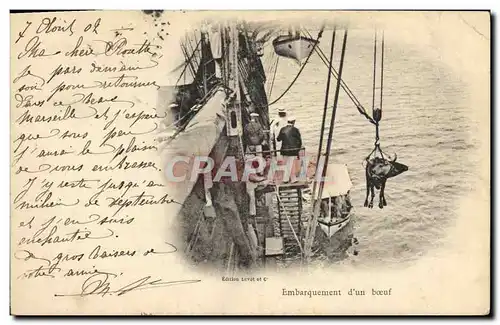 7 Août 02
Ma chère Rosette
je pars demain
pour retourner
dans ce beau
Marseille et j'espère
que sous peu
j'aurai le plaisir
de vous embrasser
J'y reste jusqu'à
milieu de Septembre
et j'en suis
enchantée
gros baisers de
votre amie
CPARAMA
Edition Levot et Cie
Embarquement d'un bœuf